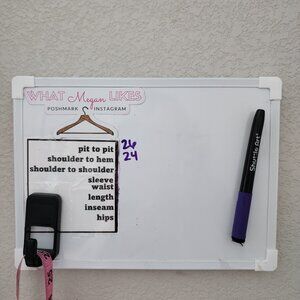 WHAT Megan LIKES
POSHMARK INSTAGRAM
pit to pit 26
shoulder to hem 24
shoulder to shoulder
sleeve
waist
length
inseam
hips